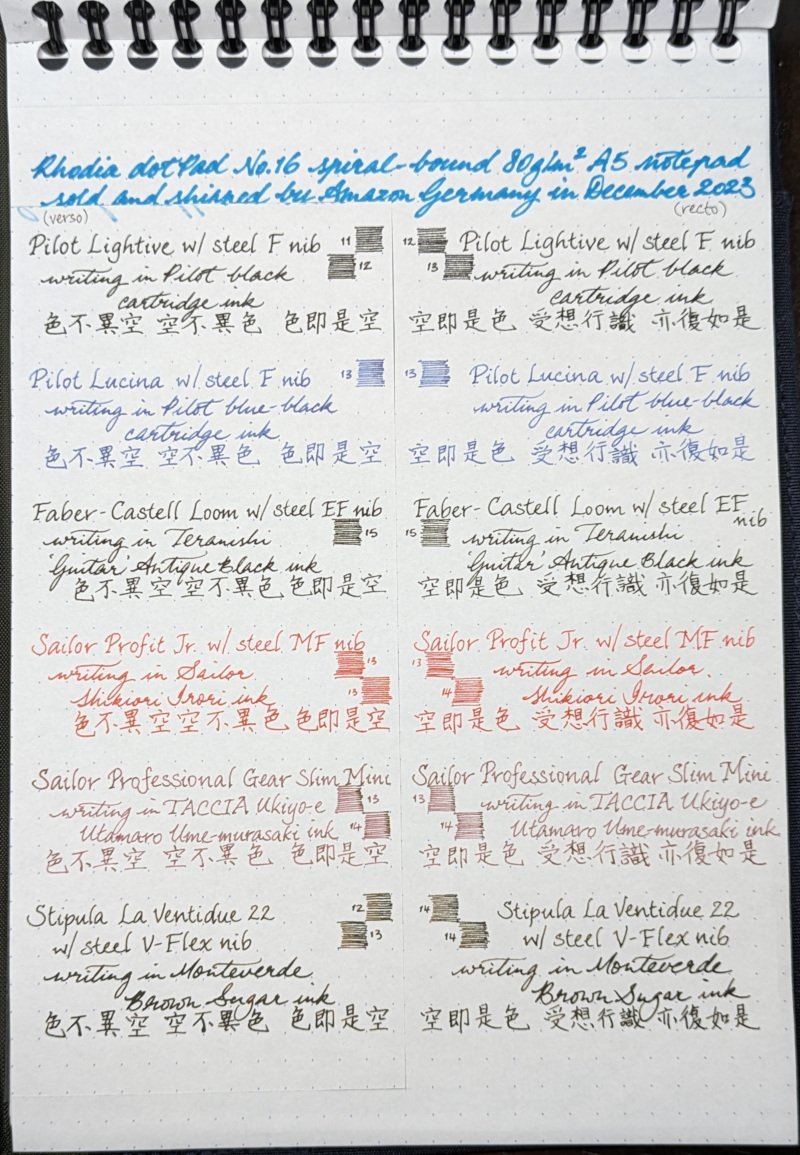 Rhodia dotPad No.16 spiral-bound 80g/m² A5 notepad
sold and shipped by Amazon Germany in December 2023
(verso)
Pilot Lightive w/ steel F nib 11
writing in Pilot black 12
cartridge ink
色不異空 空不異色 色即是空
Pilot Lucina w/ steel F nib 13
writing in Pilot blue-black
cartridge ink
色不異空 空不異色 色即是空
Faber-Castell Loom w/ steel EF nib
writing in Teranishi 15
'Guitar' Antique Black ink
色不異空 空不異色 色即是空
Sailor Profit Jr. w/ steel MF nib
writing in Sailor 13
Shikiori Irori ink 13
色不異空 空不異色 色即是空
Sailor Professional Gear Slim Mini
writing in TACCIA Ukiyo-e 13
Utamaro Ume-murasaki ink 14
色不異空 空不異色 色即是空
Stipula La Ventidue 22 12
w/ steel V-Flex nib 13
writing in Monteverde
Brown Sugar ink
色不異空 空不異色 色即是空
(recto)
12 Pilot Lightive w/ steel F nib
13 writing in Pilot black
cartridge ink
空即是色 受想行識 亦復如是
13 Pilot Lucina w/ steel F nib
writing in Pilot blue-black
cartridge ink
空即是色 受想行識 亦復如是
Faber-Castell Loom w/ steel EF
nib
15 writing in Teranishi
'Guitar' Antique Black ink
空即是色 受想行識 亦復如是
Sailor Profit Jr. w/ steel MF nib
13 writing in Sailor
14 Shikiori Irori ink
空即是色 受想行識 亦復如是
Sailor Professional Gear Slim Mini
13 writing in TACCIA Ukiyo-e
14 Utamaro Ume-murasaki ink
空即是色 受想行識 亦復如是
14 Stipula La Ventidue 22
14 w/ steel V-Flex nib
writing in Monteverde
Brown Sugar ink
空即是色 受想行識 亦復如是